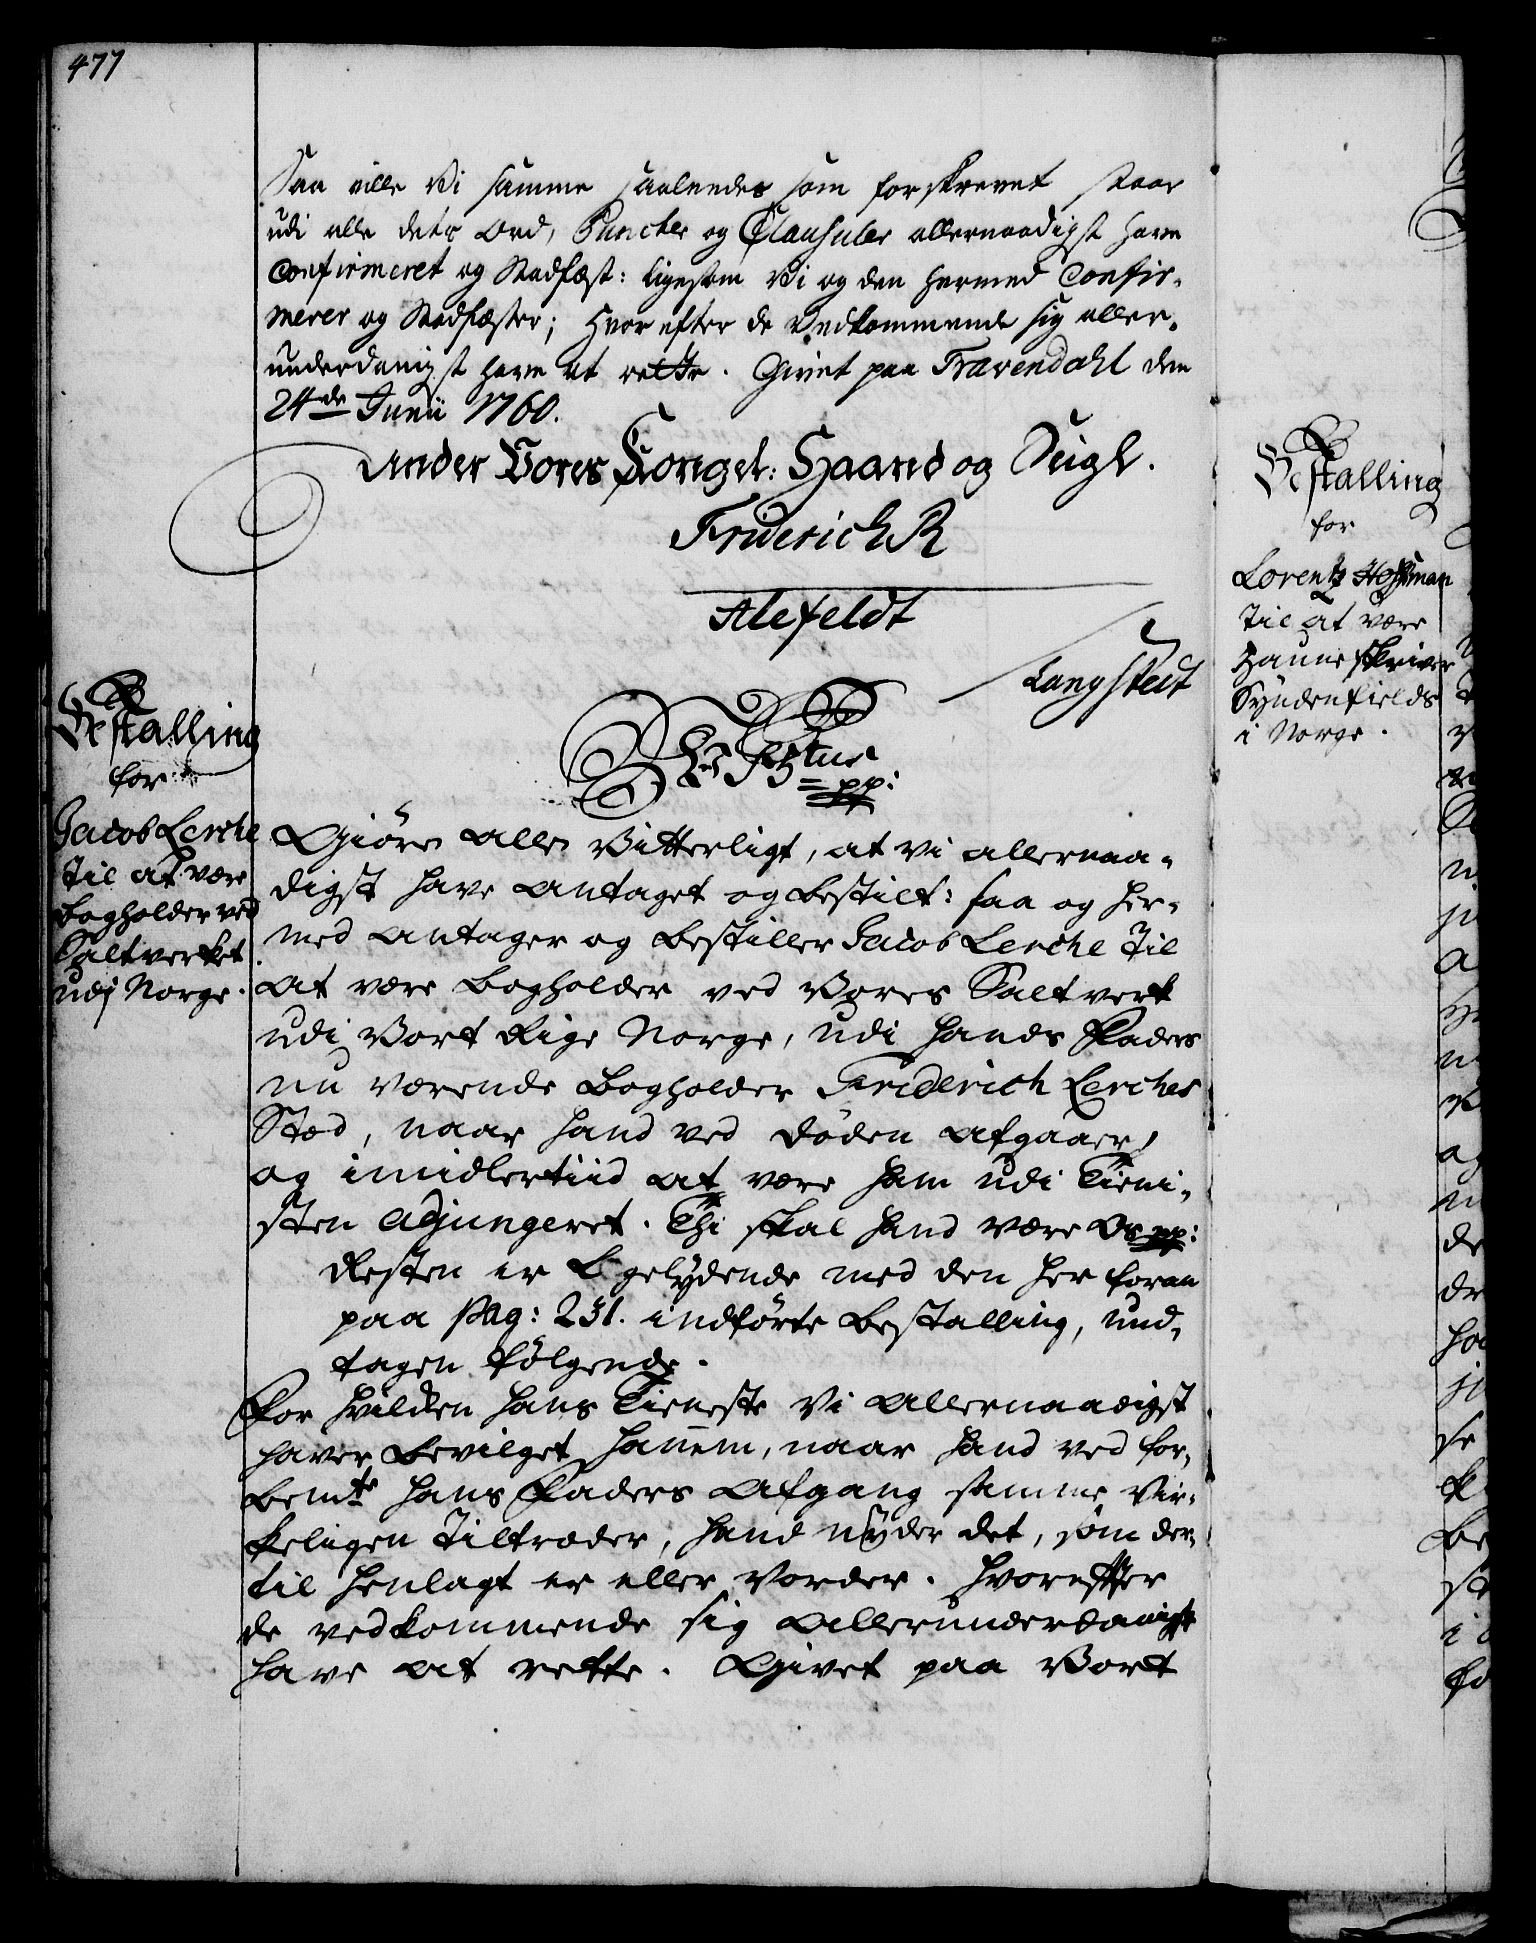 477
Saa ville Vi samme saaledes som forskrevet staar
udi alle dets Ord, Puncter og Clausuler allernaadigst have
Confirmeret og Stadfæst: ligesom Vi og den hermed Confir-
merer og Stadfæster; Hvorefter de Vedkommende sig aller-
underdanigst have at rette. Givet paa Travendahl den
24de Junii 1760.
Under Vores Kongel: Haand og Seigl.
Friderich R
Alefeldt
Langsted
Bestalling
for
Jacob Lerche
Til at være
Bogholder ved
Saltverket
udj Norge.
pp:
Giöre Alle Vitterligt, at vi allernaa-
digst have Antaget og bestilt: saa og her-
med Antager og bestiller Jacob Lerche Til
at være Bogholder ved Vores Saltverk
udi Vort Rige Norge, udi hands Faders
nu værende Bogholder Friderich Lerches
Stæd, naar hand ved Döden Afgaaer,
og imidlertiid at være ham udi Tieni-
sten Adjungeret. Thi skal hand være Os pp:
Resten er Ligelydende med den her foran
paa Pag: 231. indförte Bestalling, und-
tagen fölgende.
For hvilken hans Tieneste Vi Allernaadigst
haver bevilget hannem, naar hand ved for-
bemte hans Faders Afgang samme Vir-
keligen Tiltræder, hand nÿder det, som der-
til henlagt er eller Vorder. Hvorefter
de vedkommende sig Allerunderdanigst
have at rette. Givet paa Vort
Bestalling
for
Lorentz Hoffman
Til at være
Hauneskriver
Syndenfields
i Norge.